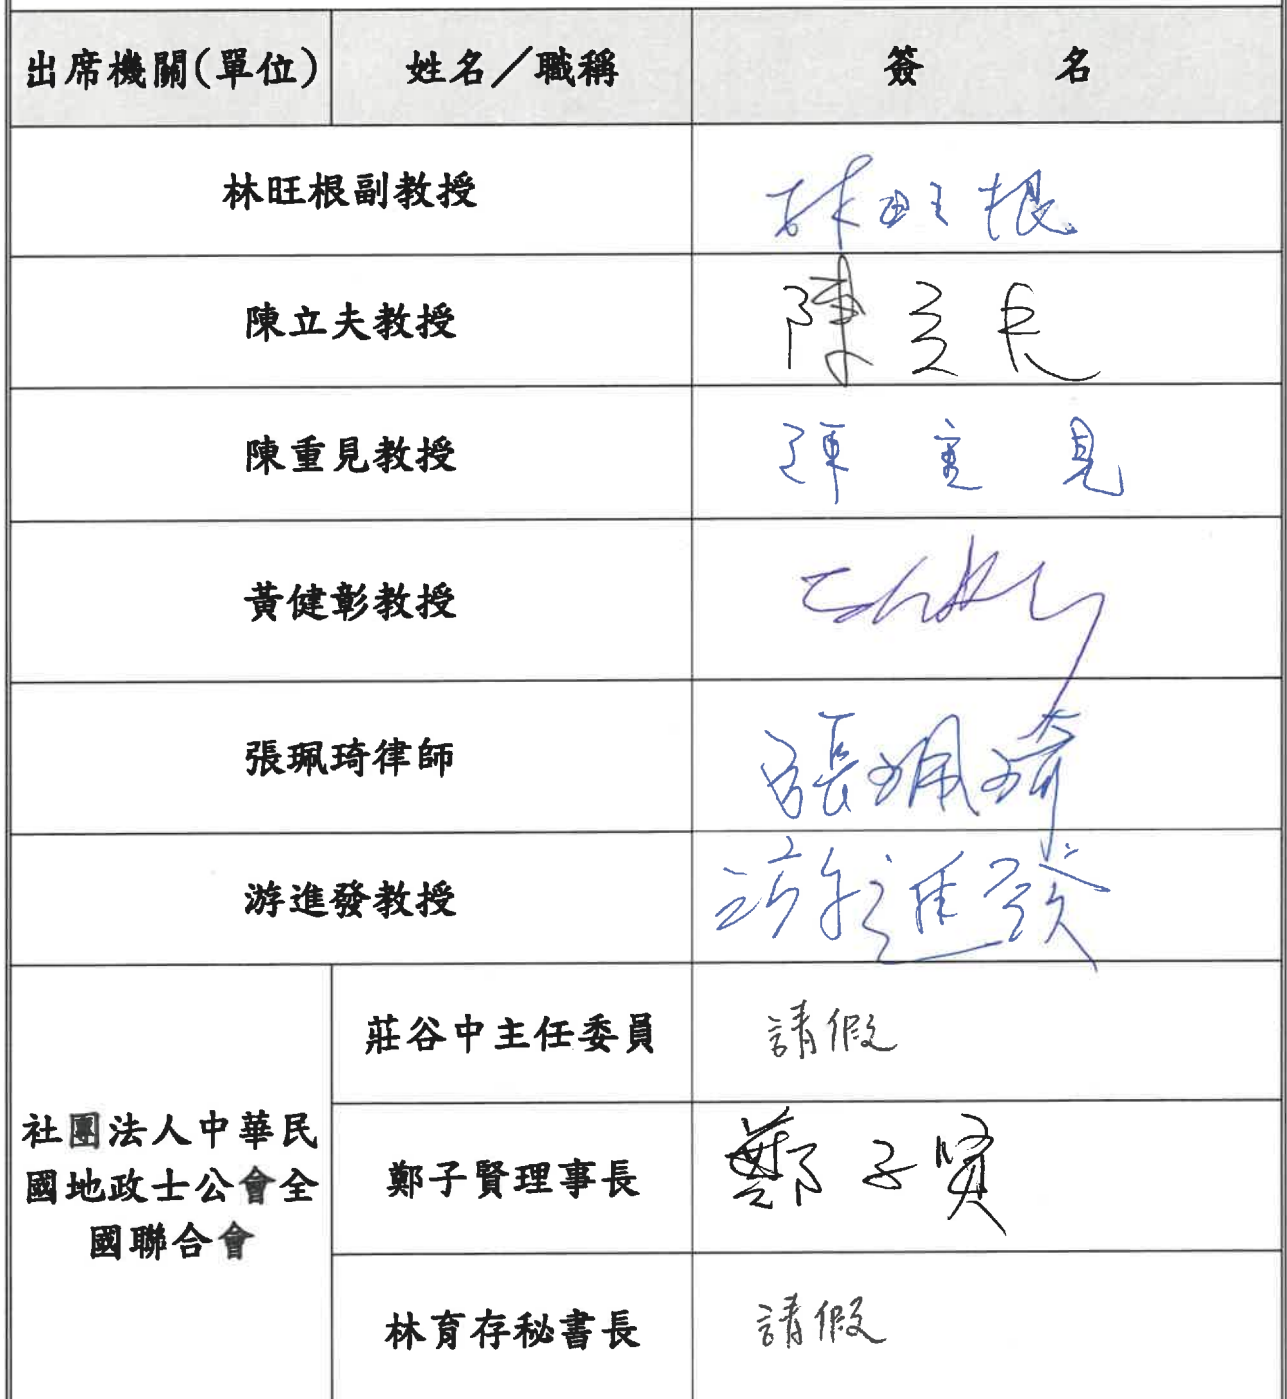 出席機關(單位) 姓名／職稱 簽 名
林旺根副教授 林旺根
陳立夫教授 陳立夫
陳重見教授 陳重見
黃健彰教授
張珮琦律師 張珮琦
游進發教授 游進發
社團法人中華民
國地政士公會全
國聯合會
莊谷中主任委員 請假
鄭子賢理事長 鄭子賢
林育存秘書長 請假